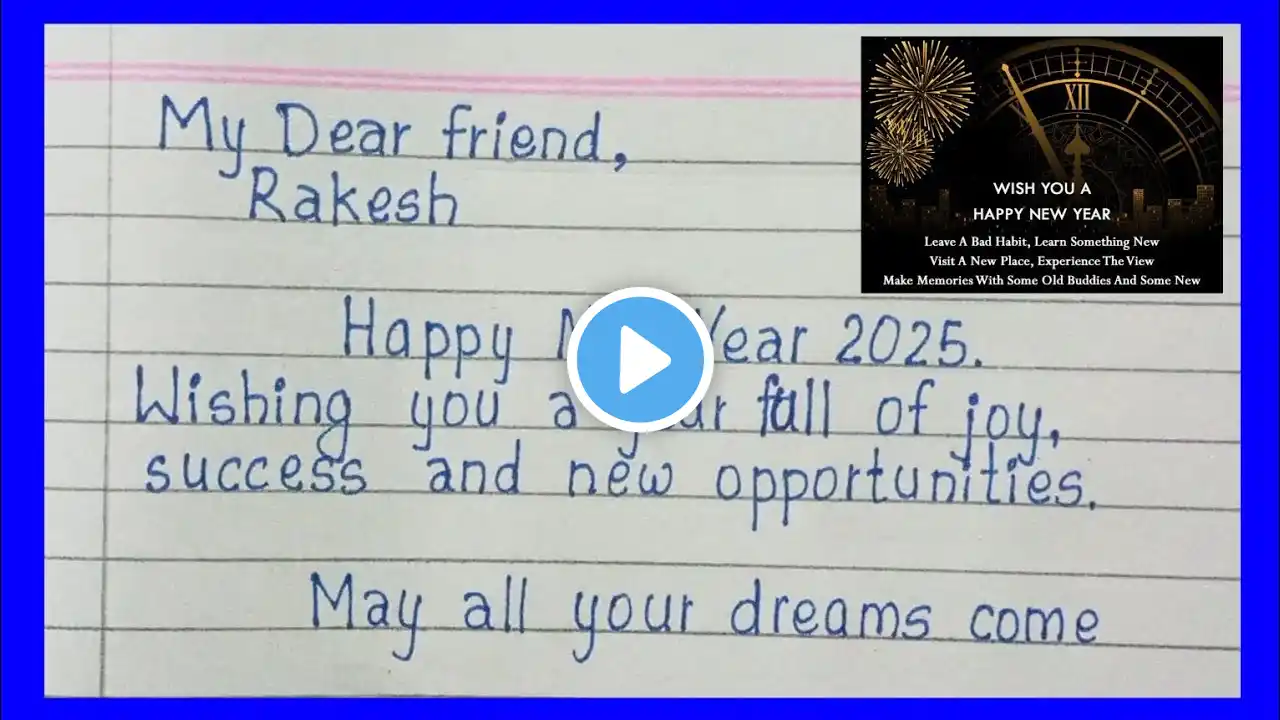 My Dear friend,
Rakesh
WISH YOU A
HAPPY NEW YEAR
Leave A Bad Habit, Learn Something New
Visit A New Place, Experience The View
Make Memories With Some Old Buddies And Some New
XII
I
II
Happy Year 2025.
Wishing you a full of joy,
success and new opportunities.
May all your dreams come